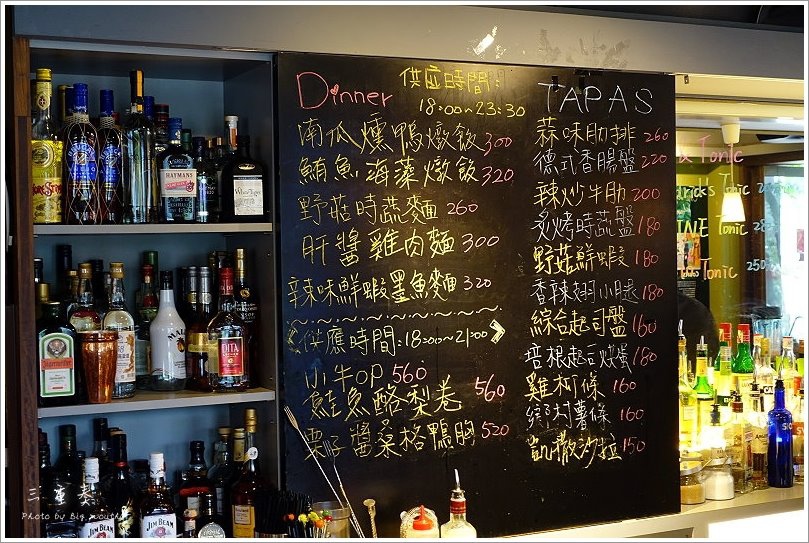 Dinner
供应時間:
18:00~23:30
南瓜燻鴨燉飯 300
鮪魚海藻燉飯 320
野菇時蔬麵 260
肝醬雞肉麵 300
辣味鮮蝦墨魚麵 320
供應時間:18:00~21:00
小牛OP 560
鮭魚酪梨卷 560
栗子醬桑格鴨胸 520
TAPAS
蒜味肋排 260
德式香腸盤 220
辣炒牛肋 200
炙烤時蔬盤 180
野菇鮮蝦 180
香辣翅小腿 180
綜合起司盤 160
培根起司烘蛋 160
雞柳條 160
鄉村薯條 160
凱撒沙拉 150
Tonic
Tonic
Tonic
Tonic
250
HAYMANS
JIM BEAM
JIM BEAM
三重奏
Photo by Big mouth